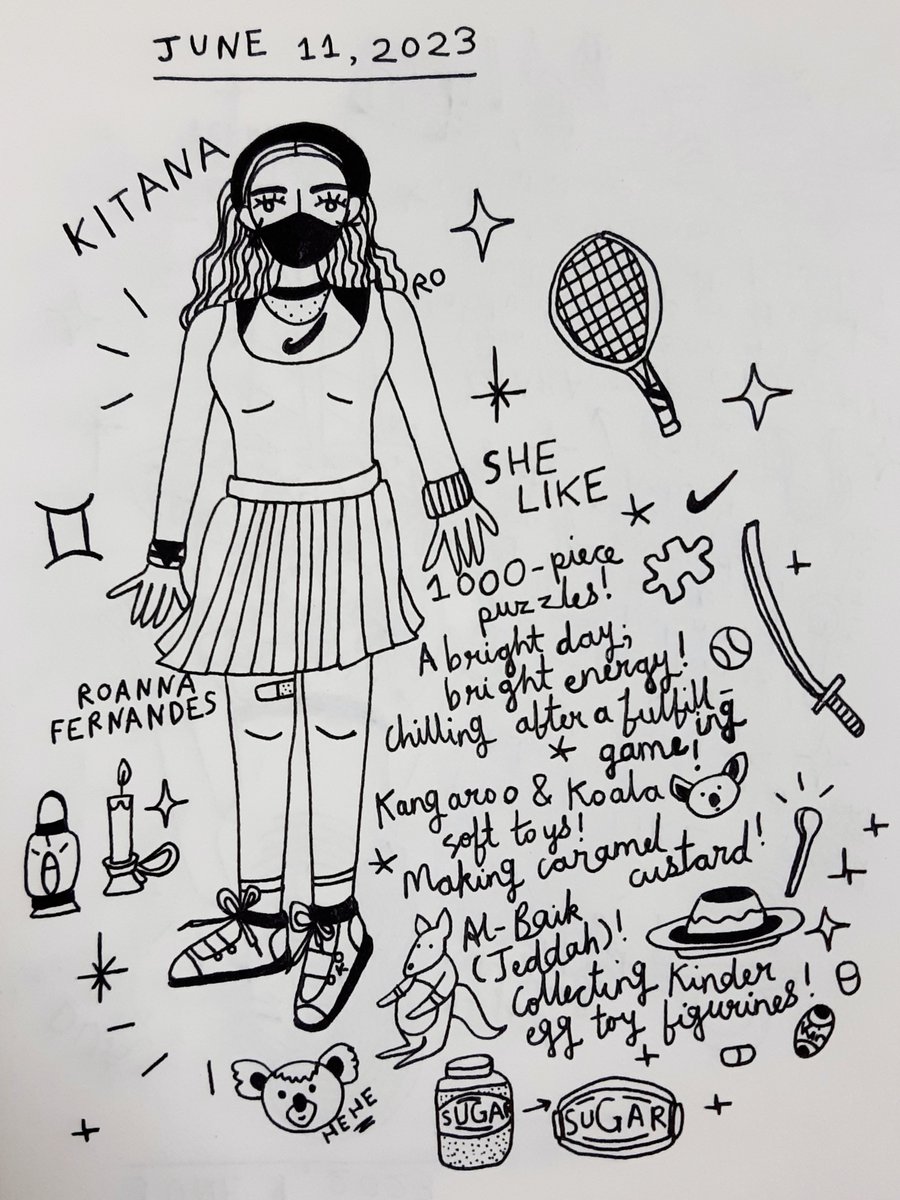 JUNE 11, 2023
KITANA
RO
SHE
LIKE
1000-piece
puzzles!
A bright day;
bright energy!
chilling after a fulfill-
ing
game!
Kangaroo & Koala
soft toys!
Making caramel
custard!
Al-Baik
(Jeddah)!
Collecting Kinder
egg toy figurines!
ROANNA
FERNANDES
HEHE
SUGAR
SUGAR